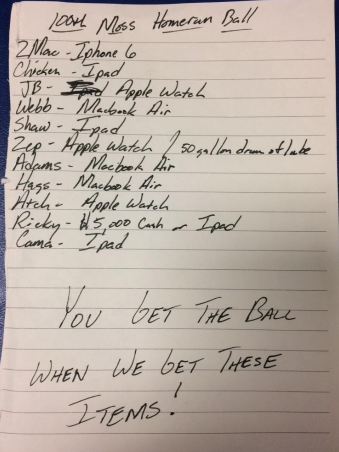 100th Moss Homerun Ball
ZMac - Iphone 6
Chicken - Ipad
JB - Apple Watch
Webb - Macbook Air
Shaw - Ipad
Zep - Apple Watch / 50 gallon drum of lube
Adams - Macbook Air
Hags - Macbook Air
Atch - Apple Watch
Ricky - $5,000 Cash or Ipad
Cama - Ipad
YOU GET THE BALL
WHEN WE GET THESE
ITEMS!